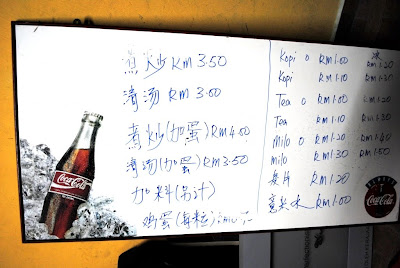 煮炒 RM 3.50
清汤 RM 3.00
煮炒(加蛋) RM 4.00
清汤(加蛋) RM 3.50
加料(另计)
鸡蛋(每粒)
Coca-Cola
冰
Kopi O RM 1.00 RM 1.20
Kopi RM 1.10 RM 1.30
Tea O RM 1.00 RM 1.20
Tea RM 1.10 RM 1.30
Milo O RM 1.20 RM 1.40
Milo RM 1.30 RM 1.50
麦片 RM 1.20
薏米水 RM 1.00
ALWAYS